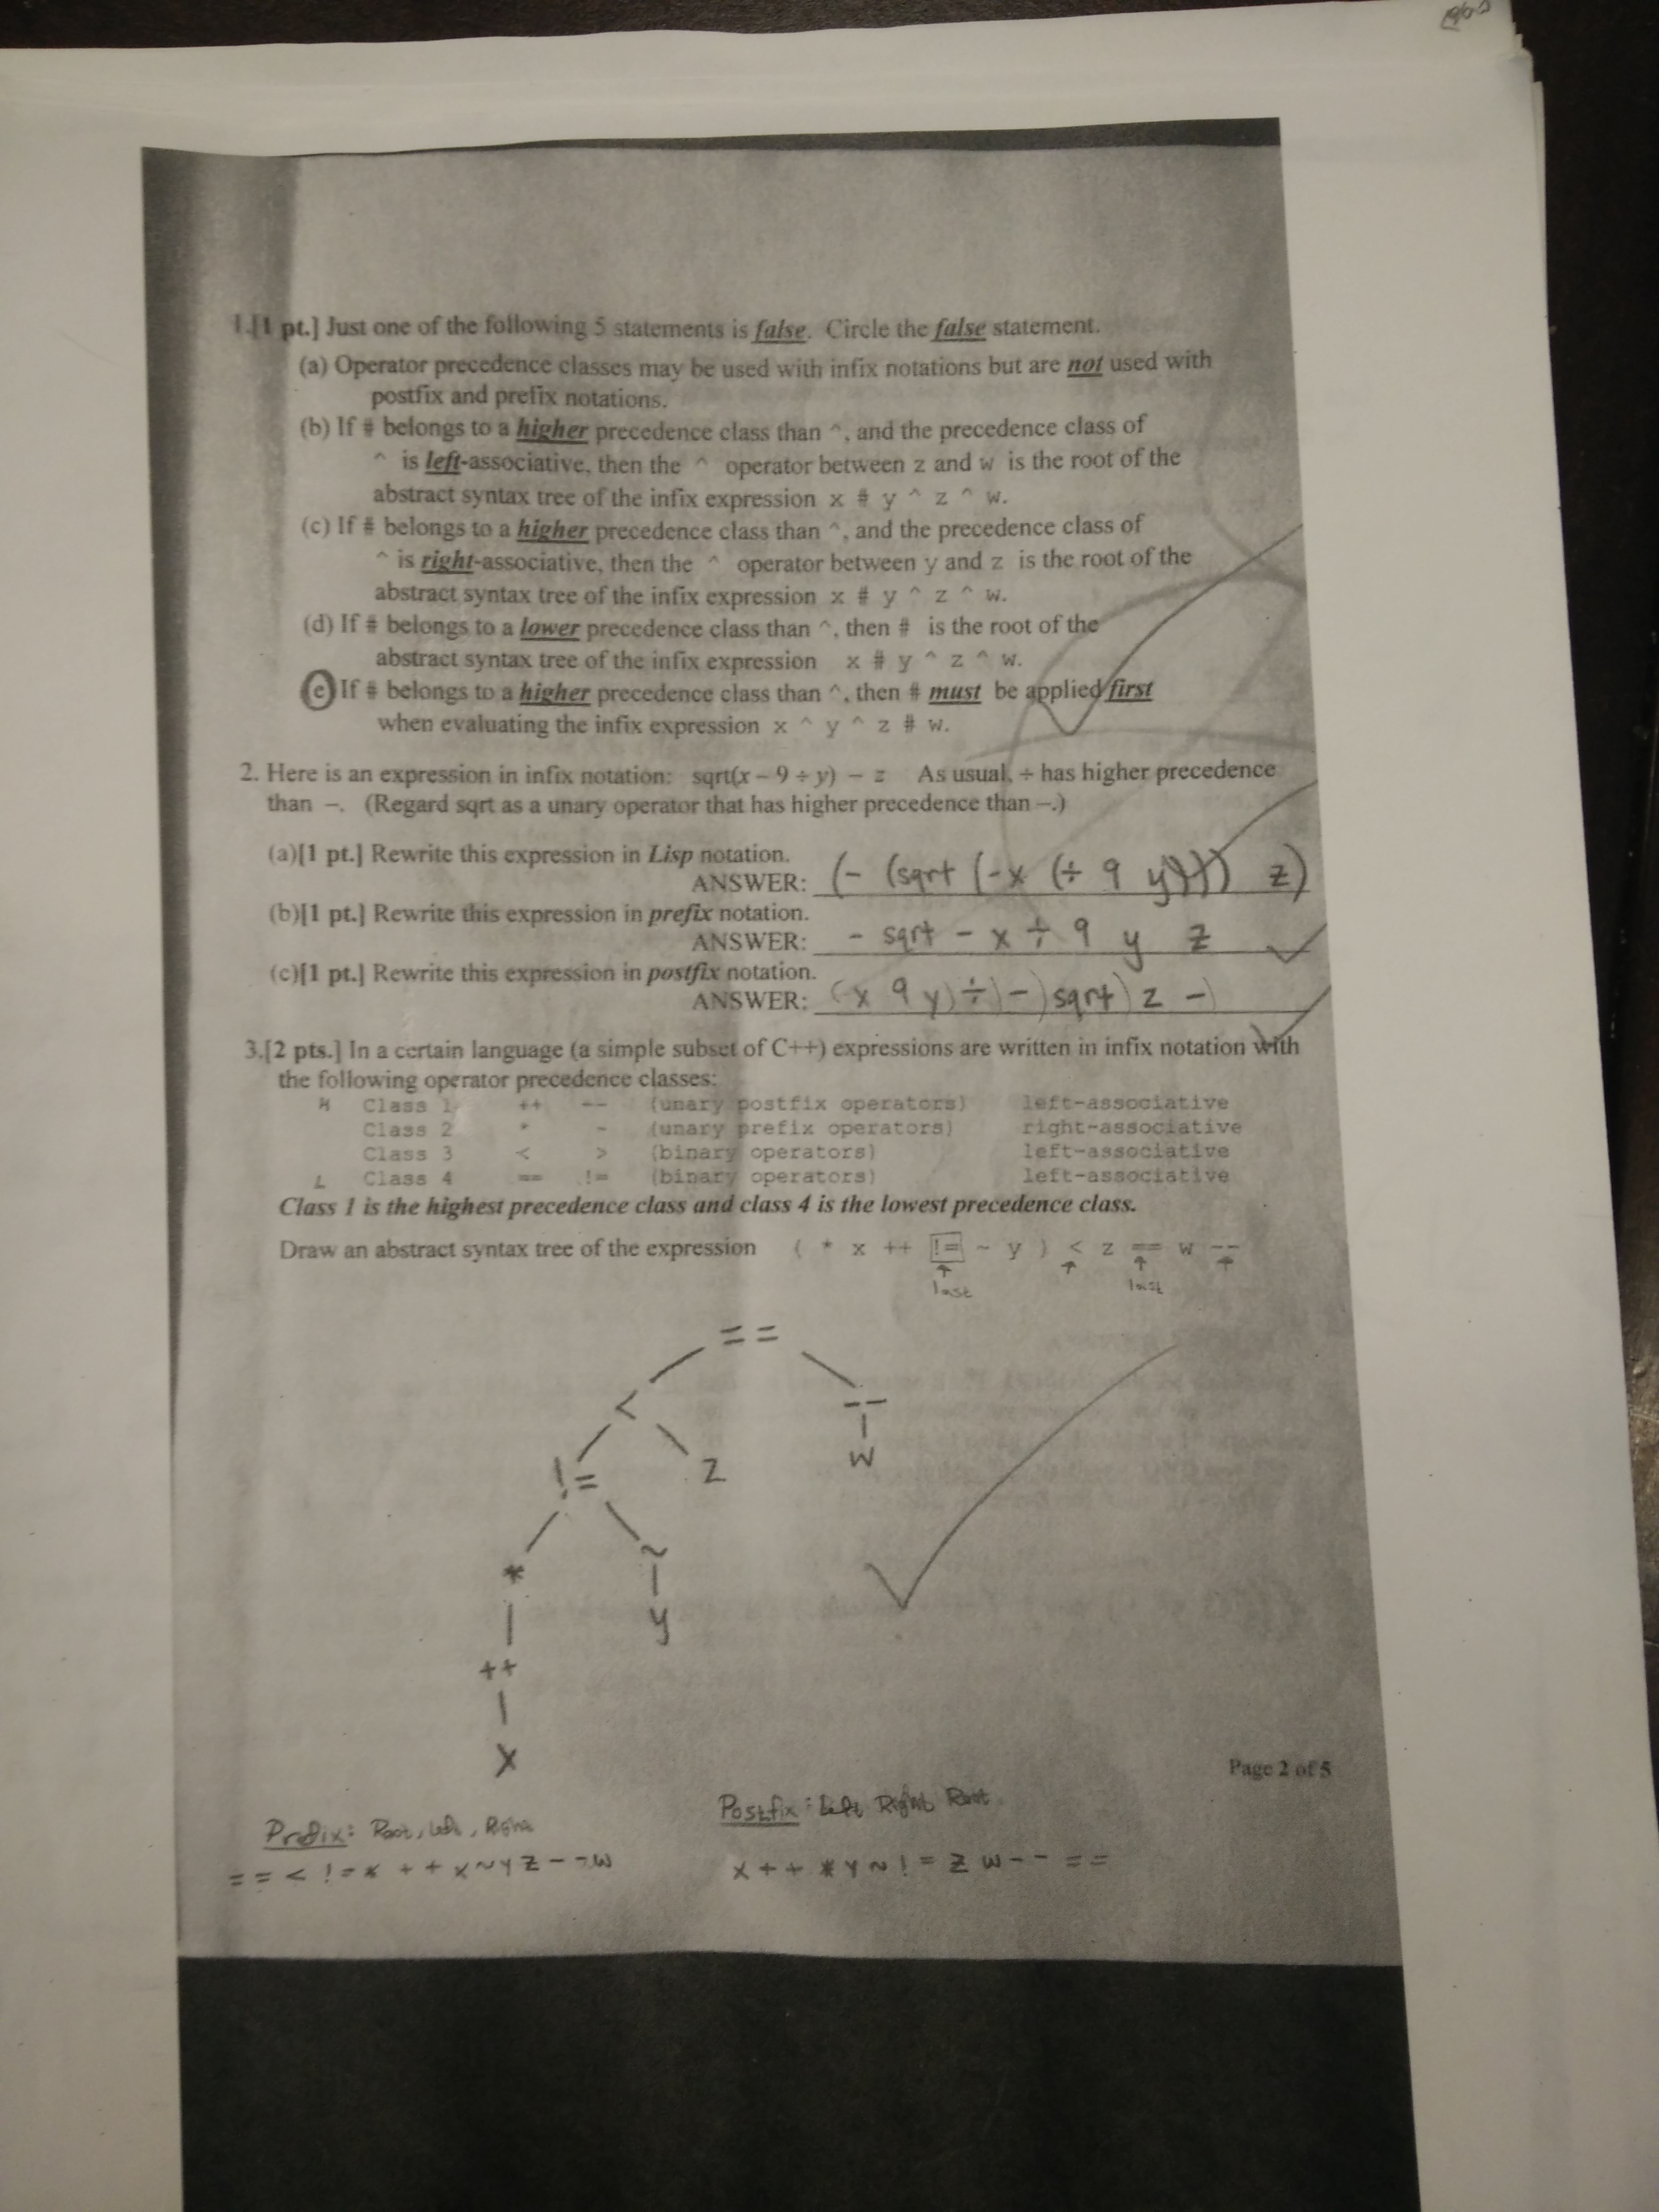 1.[1 pt.] Just one of the following 5 statements is false. Circle the false statement.
(a) Operator precedence classes may be used with infix notations but are not used with
postfix and prefix notations.
(b) If # belongs to a higher precedence class than ^, and the precedence class of
^ is left-associative, then the ^ operator between z and w is the root of the
abstract syntax tree of the infix expression x # y ^ z ^ w.
(c) If # belongs to a higher precedence class than ^, and the precedence class of
^ is right-associative, then the ^ operator between y and z is the root of the
abstract syntax tree of the infix expression x # y ^ z ^ w.
(d) If # belongs to a lower precedence class than ^, then # is the root of the
abstract syntax tree of the infix expression x # y ^ z ^ w.
(e) If # belongs to a higher precedence class than ^, then # must be applied first
when evaluating the infix expression x ^ y ^ z # w.
2. Here is an expression in infix notation: sqrt(x – 9 ÷ y) – z As usual, ÷ has higher precedence
than –. (Regard sqrt as a unary operator that has higher precedence than –.)
(a)[1 pt.] Rewrite this expression in Lisp notation.
ANSWER: (- (sqrt (-x (÷ 9 y))) z)
(b)[1 pt.] Rewrite this expression in prefix notation.
ANSWER: - sqrt - x ÷ 9 y z
(c)[1 pt.] Rewrite this expression in postfix notation.
ANSWER: (x 9 y) ÷) -) sqrt) z -)
3.[2 pts.] In a certain language (a simple subset of C++) expressions are written in infix notation with
the following operator precedence classes:
H Class 1 ++ -- (unary postfix operators) left-associative
Class 2 * ~ (unary prefix operators) right-associative
Class 3 < > (binary operators) left-associative
L Class 4 == != (binary operators) left-associative
Class 1 is the highest precedence class and class 4 is the lowest precedence class.
Draw an abstract syntax tree of the expression ( * x ++ != ~ y ) < z == w --
last last
==
< --
!= z w
* ~
y
++
x
Page 2 of 5
Prefix: Root, Left, Right
== < != * ++ x ~ y z -- w
Postfix: Left Right Root
x ++ * y ~ != z w -- ==